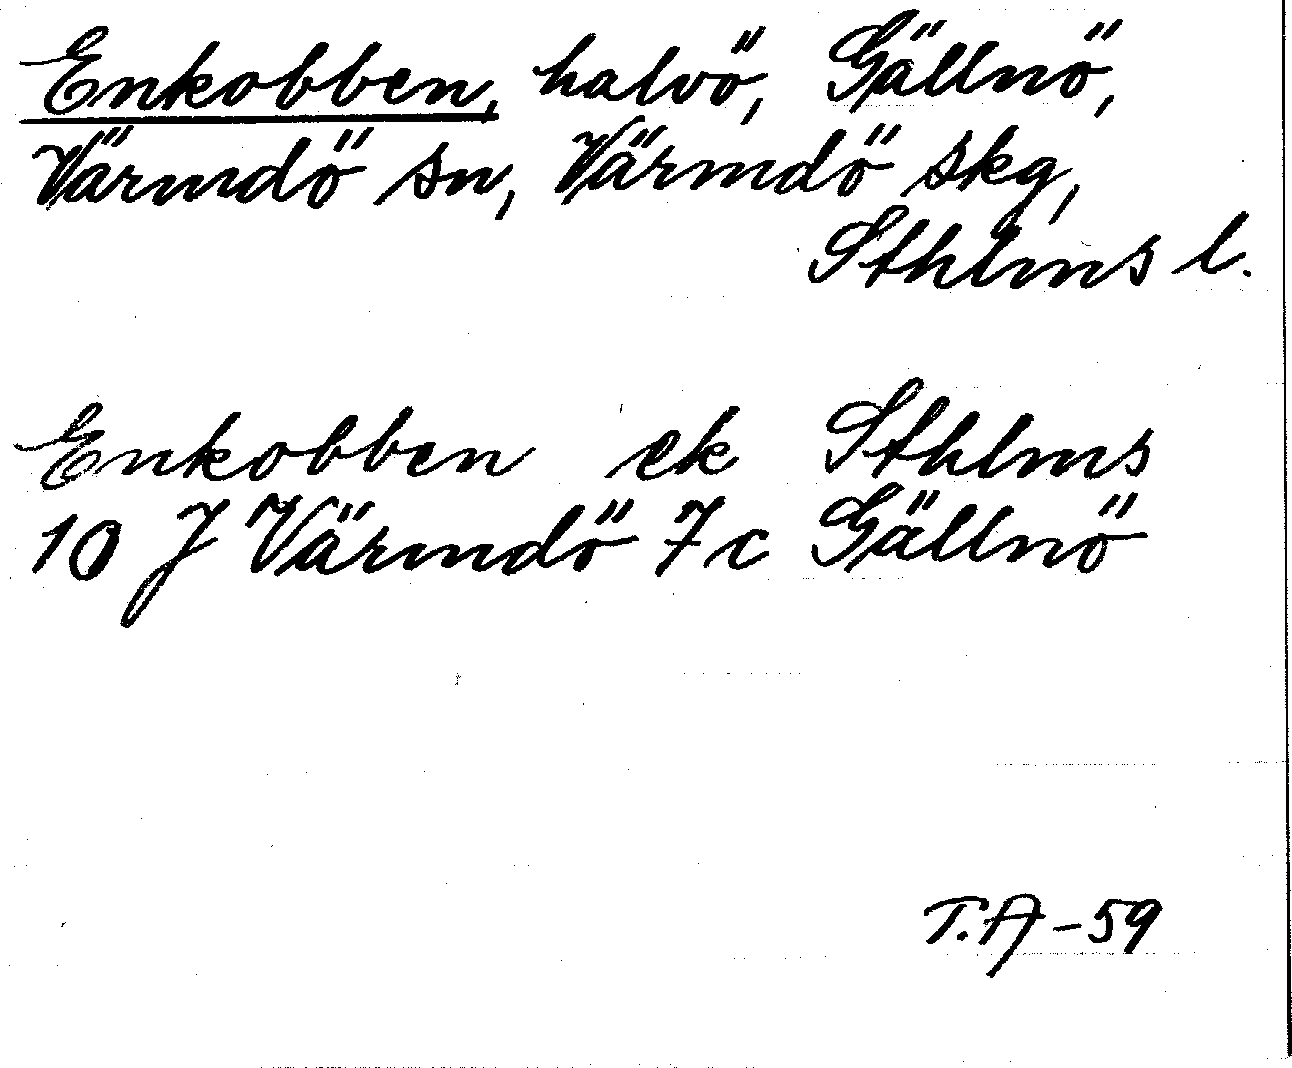 Enkobben, halvö, Gällnö,
Värmdö sn, Värmdö skg,
Sthlms l.
Enkobben ek Sthlms
10 J Värmdö 7c Gällnö
T.A-59